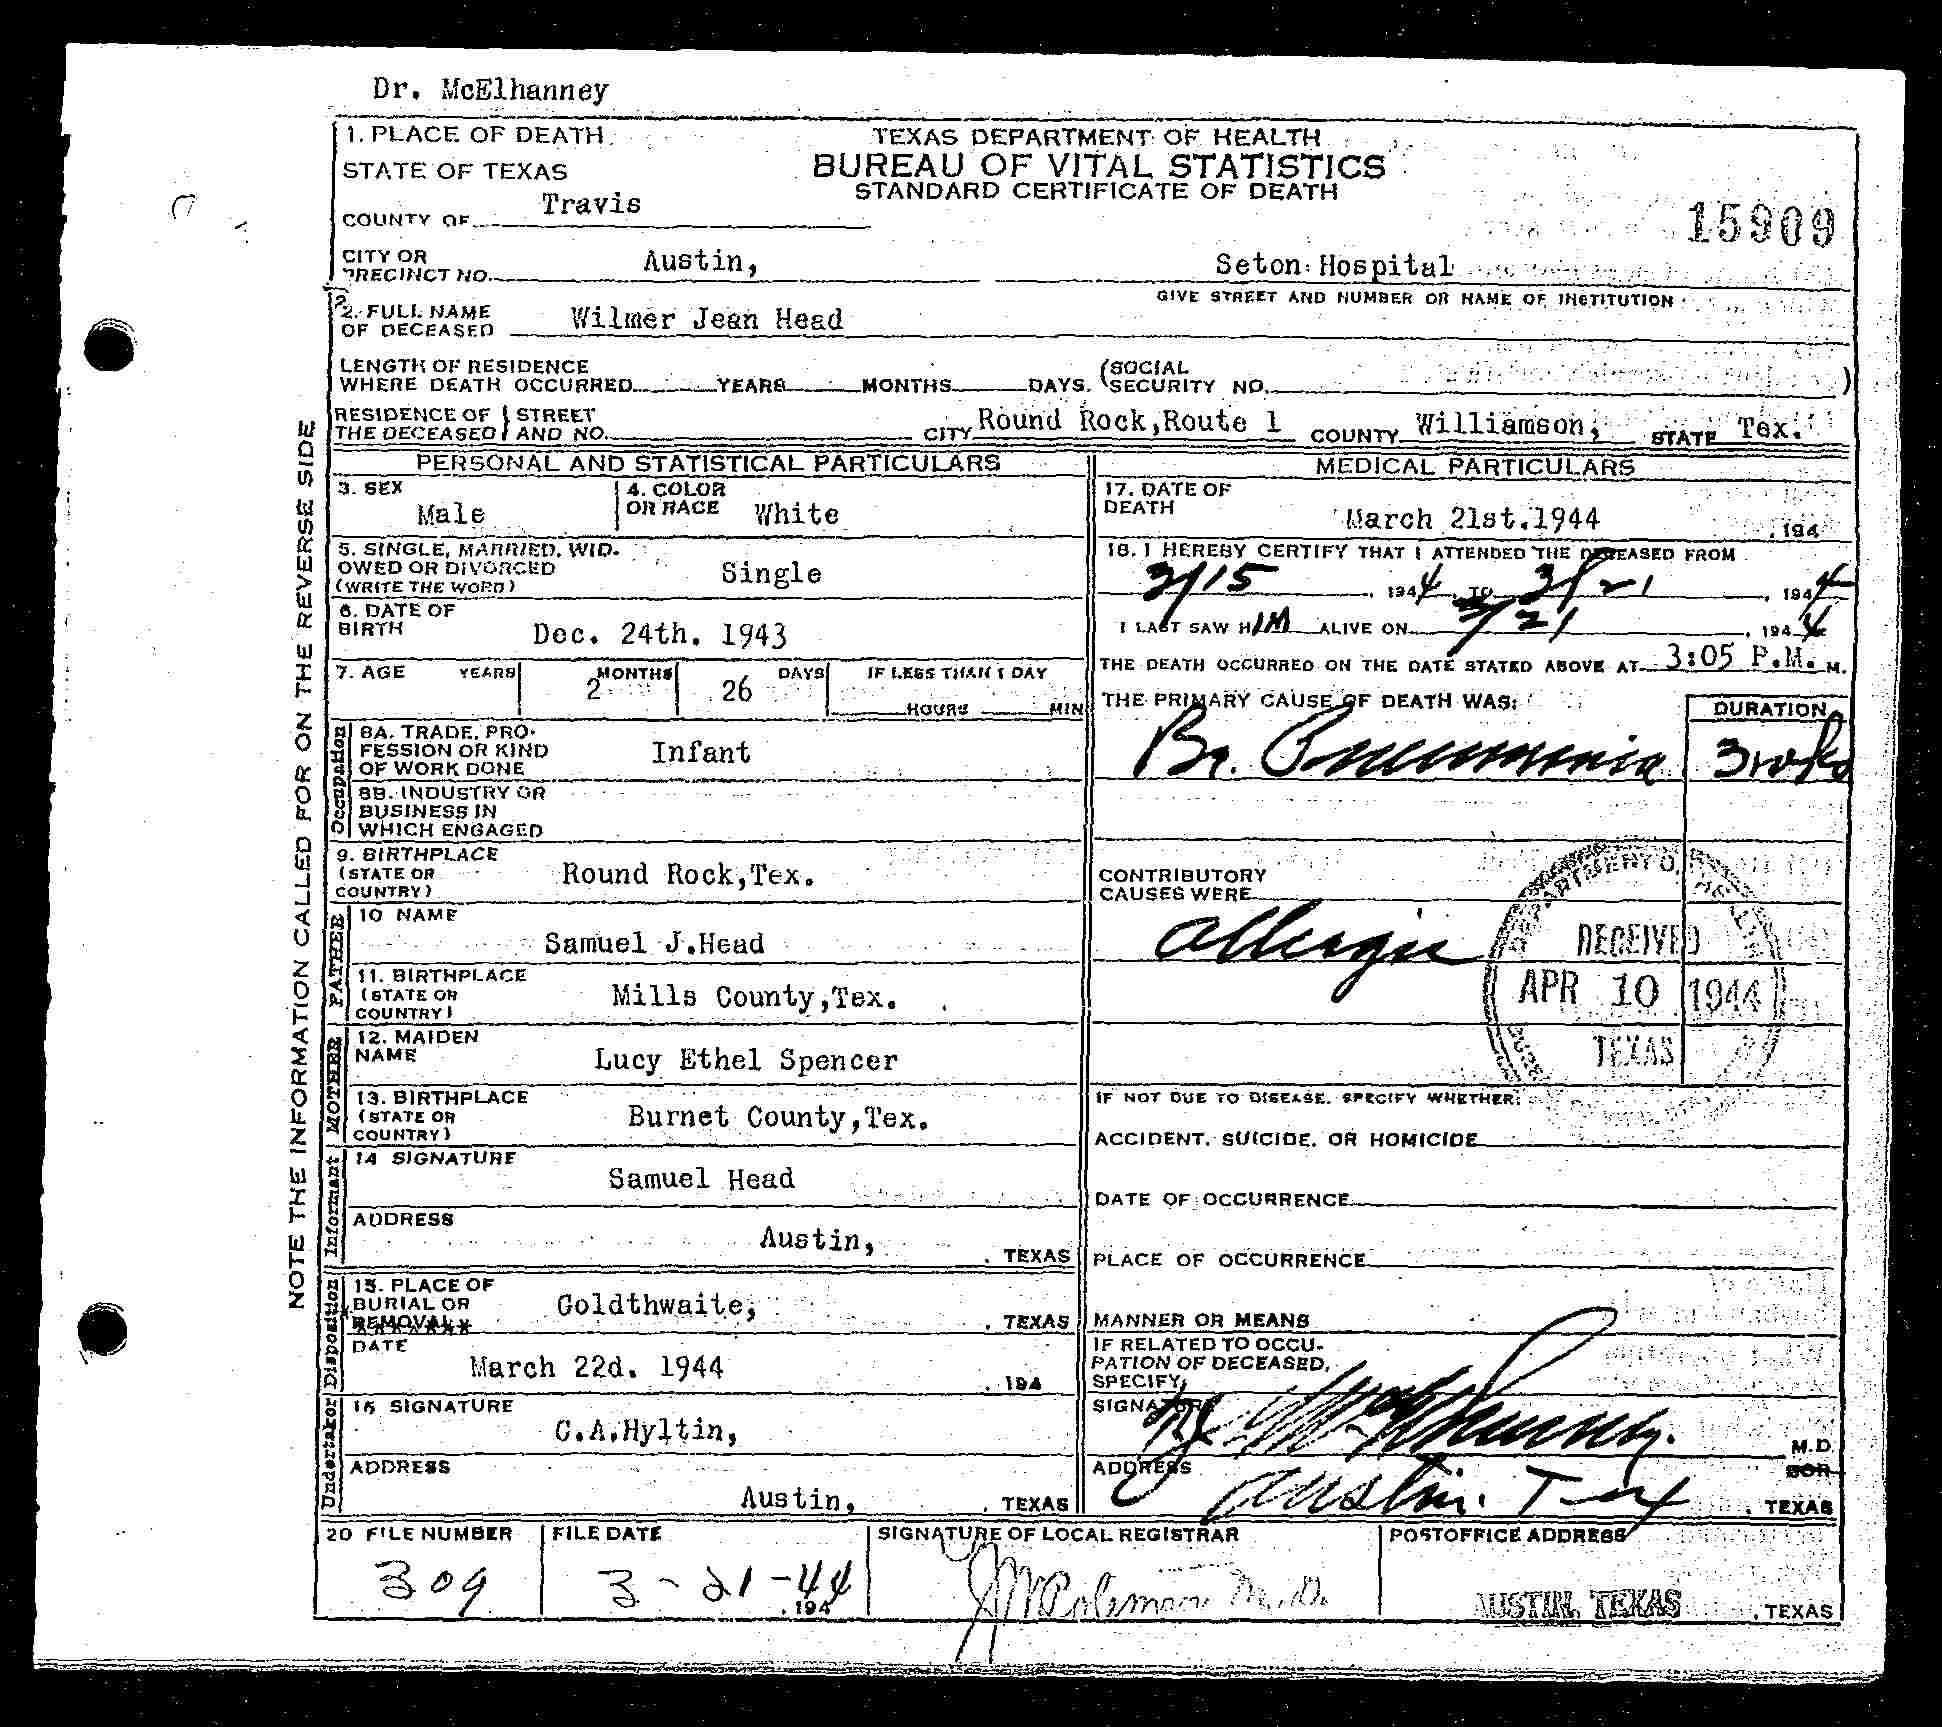 Dr. McElhanney
1. PLACE OF DEATH
STATE OF TEXAS
COUNTY OF Travis
TEXAS DEPARTMENT OF HEALTH
BUREAU OF VITAL STATISTICS
STANDARD CERTIFICATE OF DEATH
15909
CITY OR
PRECINCT NO. Austin, Seton Hospital
GIVE STREET AND NUMBER OR NAME OF INSTITUTION
2. FULL NAME
OF DECEASED Wilmer Jean Head
LENGTH OF RESIDENCE
WHERE DEATH OCCURRED YEARS MONTHS DAYS. (SOCIAL SECURITY NO. )
RESIDENCE OF THE DECEASED STREET AND NO. CITY Round Rock,Route 1 COUNTY Williamson, STATE Tex.
NOTE THE INFORMATION CALLED FOR ON THE REVERSE SIDE
PERSONAL AND STATISTICAL PARTICULARS
3. SEX Male
4. COLOR OR RACE White
5. SINGLE, MARRIED, WID-
OWED OR DIVORCED
(WRITE THE WORD) Single
6. DATE OF
BIRTH Dec. 24th. 1943
7. AGE YEARS 2 MONTHS 26 DAYS IF LESS THAN 1 DAY
HOURS MIN
Occupation
8A. TRADE, PRO-
FESSION OR KIND
OF WORK DONE Infant
8B. INDUSTRY OR
BUSINESS IN
WHICH ENGAGED
9. BIRTHPLACE
(STATE OR
COUNTRY) Round Rock,Tex.
FATHER
10 NAME
Samuel J.Head
11. BIRTHPLACE
(STATE OR
COUNTRY) Mills County,Tex.
MOTHER
12. MAIDEN
NAME Lucy Ethel Spencer
13. BIRTHPLACE
(STATE OR
COUNTRY) Burnet County,Tex.
Informant
14 SIGNATURE
Samuel Head
ADDRESS
Austin, , TEXAS
Disposition
15. PLACE OF
BURIAL OR
REMOVAL Goldthwaite, , TEXAS
DATE
March 22d. 1944 , 194
Undertaker
16 SIGNATURE
C.A.Hyltin,
ADDRESS
Austin, , TEXAS
MEDICAL PARTICULARS
17. DATE OF
DEATH March 21st.1944 , 194
18. I HEREBY CERTIFY THAT I ATTENDED THE DECEASED FROM
3/15 , 1944 TO 3/21 , 1944
I LAST SAW HIM ALIVE ON 3/21 , 1944
THE DEATH OCCURRED ON THE DATE STATED ABOVE AT 3:05 P.M. M.
THE PRIMARY CAUSE OF DEATH WAS: DURATION
Br. Pneumonia 3 wks
CONTRIBUTORY
CAUSES WERE
Allergic
RECEIVED
APR 10 1944
TEXAS
IF NOT DUE TO DISEASE, SPECIFY WHETHER:
ACCIDENT, SUICIDE, OR HOMICIDE
DATE OF OCCURRENCE
PLACE OF OCCURRENCE
MANNER OR MEANS
IF RELATED TO OCCU-
PATION OF DECEASED,
SPECIFY
SIGNATURE McElhanney. M.D.
ADDRESS Austin. Tex , TEXAS
20 FILE NUMBER
309
FILE DATE
3-21-44
, 194
SIGNATURE OF LOCAL REGISTRAR
M.D.
POSTOFFICE ADDRESS
AUSTIN, TEXAS , TEXAS